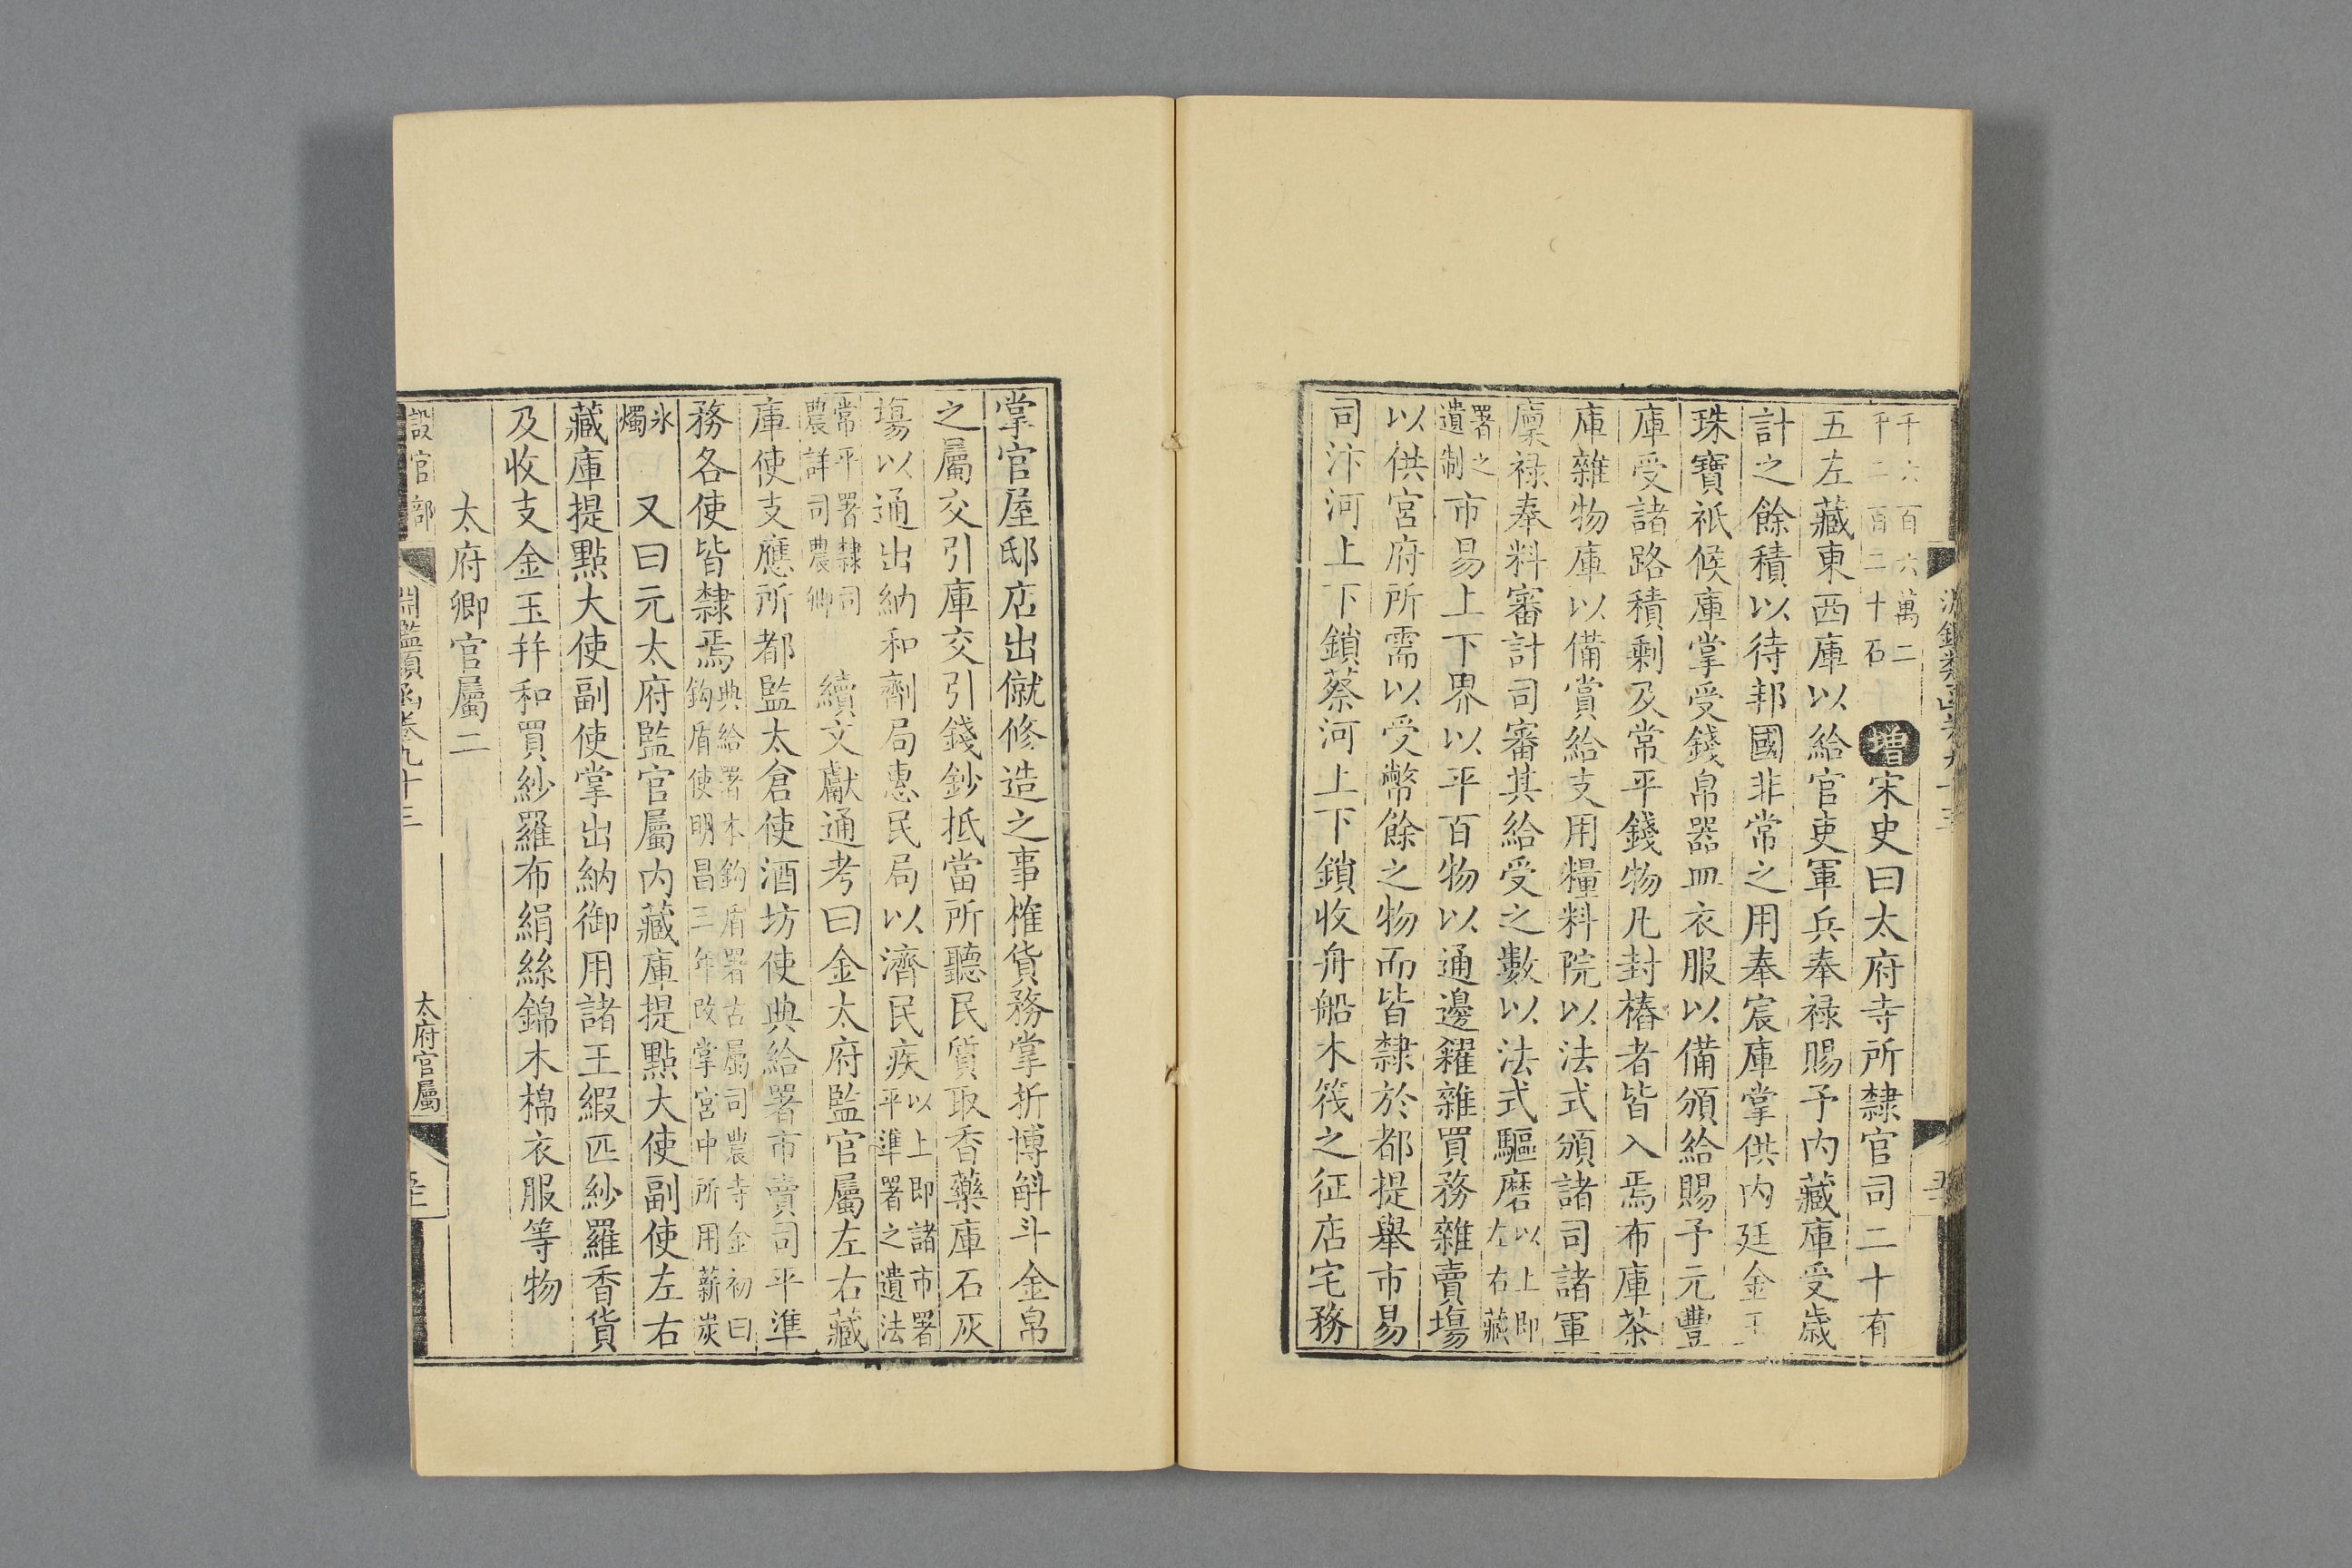 千六百六萬二
千二百二十石
增宋史曰太府寺所隸官司二十有
五左藏東西庫以給官吏軍兵奉祿賜予內藏庫受歲
計之餘積以待邦國非常之用奉宸庫掌供內廷金玉
珠寶祇候庫掌受錢帛器皿衣服以備頒給賜予元豐
庫受諸路積剩及常平錢物凡封樁者皆入焉布庫茶
庫雜物庫以備賞給支用糧料院以法式頒諸司諸軍
廩祿奉料審計司審其給受之數以法式驅磨以上即左右藏
署之遺制市易上下界以平百物以通邊糴雜買務雜賣場
以供宮府所需以受幣餘之物而皆隸於都提舉市易
司汴河上下鎖蔡河上下鎖收舟船木筏之征店宅務
掌官屋邸店出僦修造之事榷貨務掌折博斛斗金帛
之屬交引庫交引錢鈔抵當所聽民質取香藥庫石灰
場以通出納和劑局惠民局以濟民疾以上即諸市署平準署之遺法
常平署隸司農詳司農卿 續文獻通考曰金太府監官屬左右藏
庫使支應所都監太倉使酒坊使典給署市賣司平準
務各使皆隸焉典給署本鈎盾署古屬司農寺金初曰鈎盾使明昌三年改掌宮中所用薪炭
氷燭 又曰元太府監官屬內藏庫提點大使副使左右
藏庫提點大使副使掌出納御用諸王緞匹紗羅香貨
及收支金玉并和買紗羅布絹絲錦木棉衣服等物
太府卿官屬二
設官部
淵鑑類函卷九十三
太府官屬